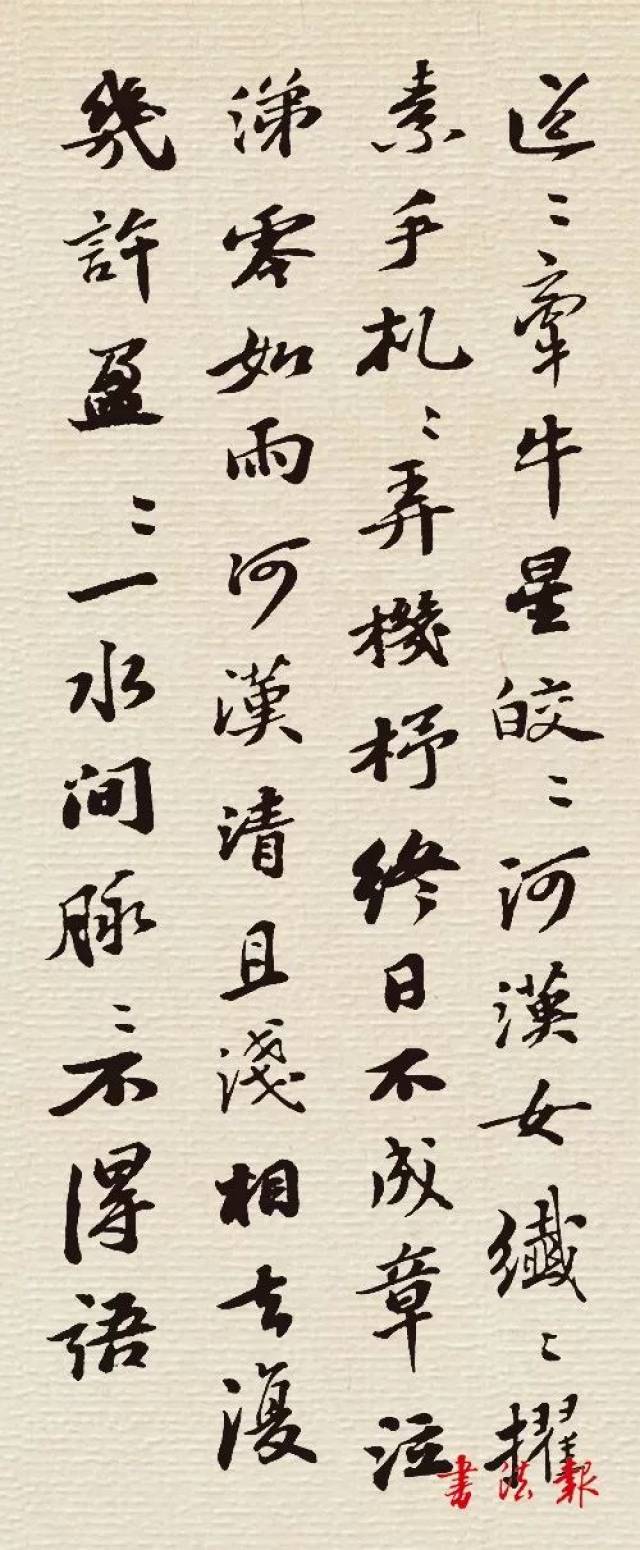 迢〻牽牛星皎〻河漢女纖〻擢
素手札〻弄機杼終日不成章泣
涕零如雨河漢清且淺相去復
幾許盈〻一水間脉〻不得語
書法報